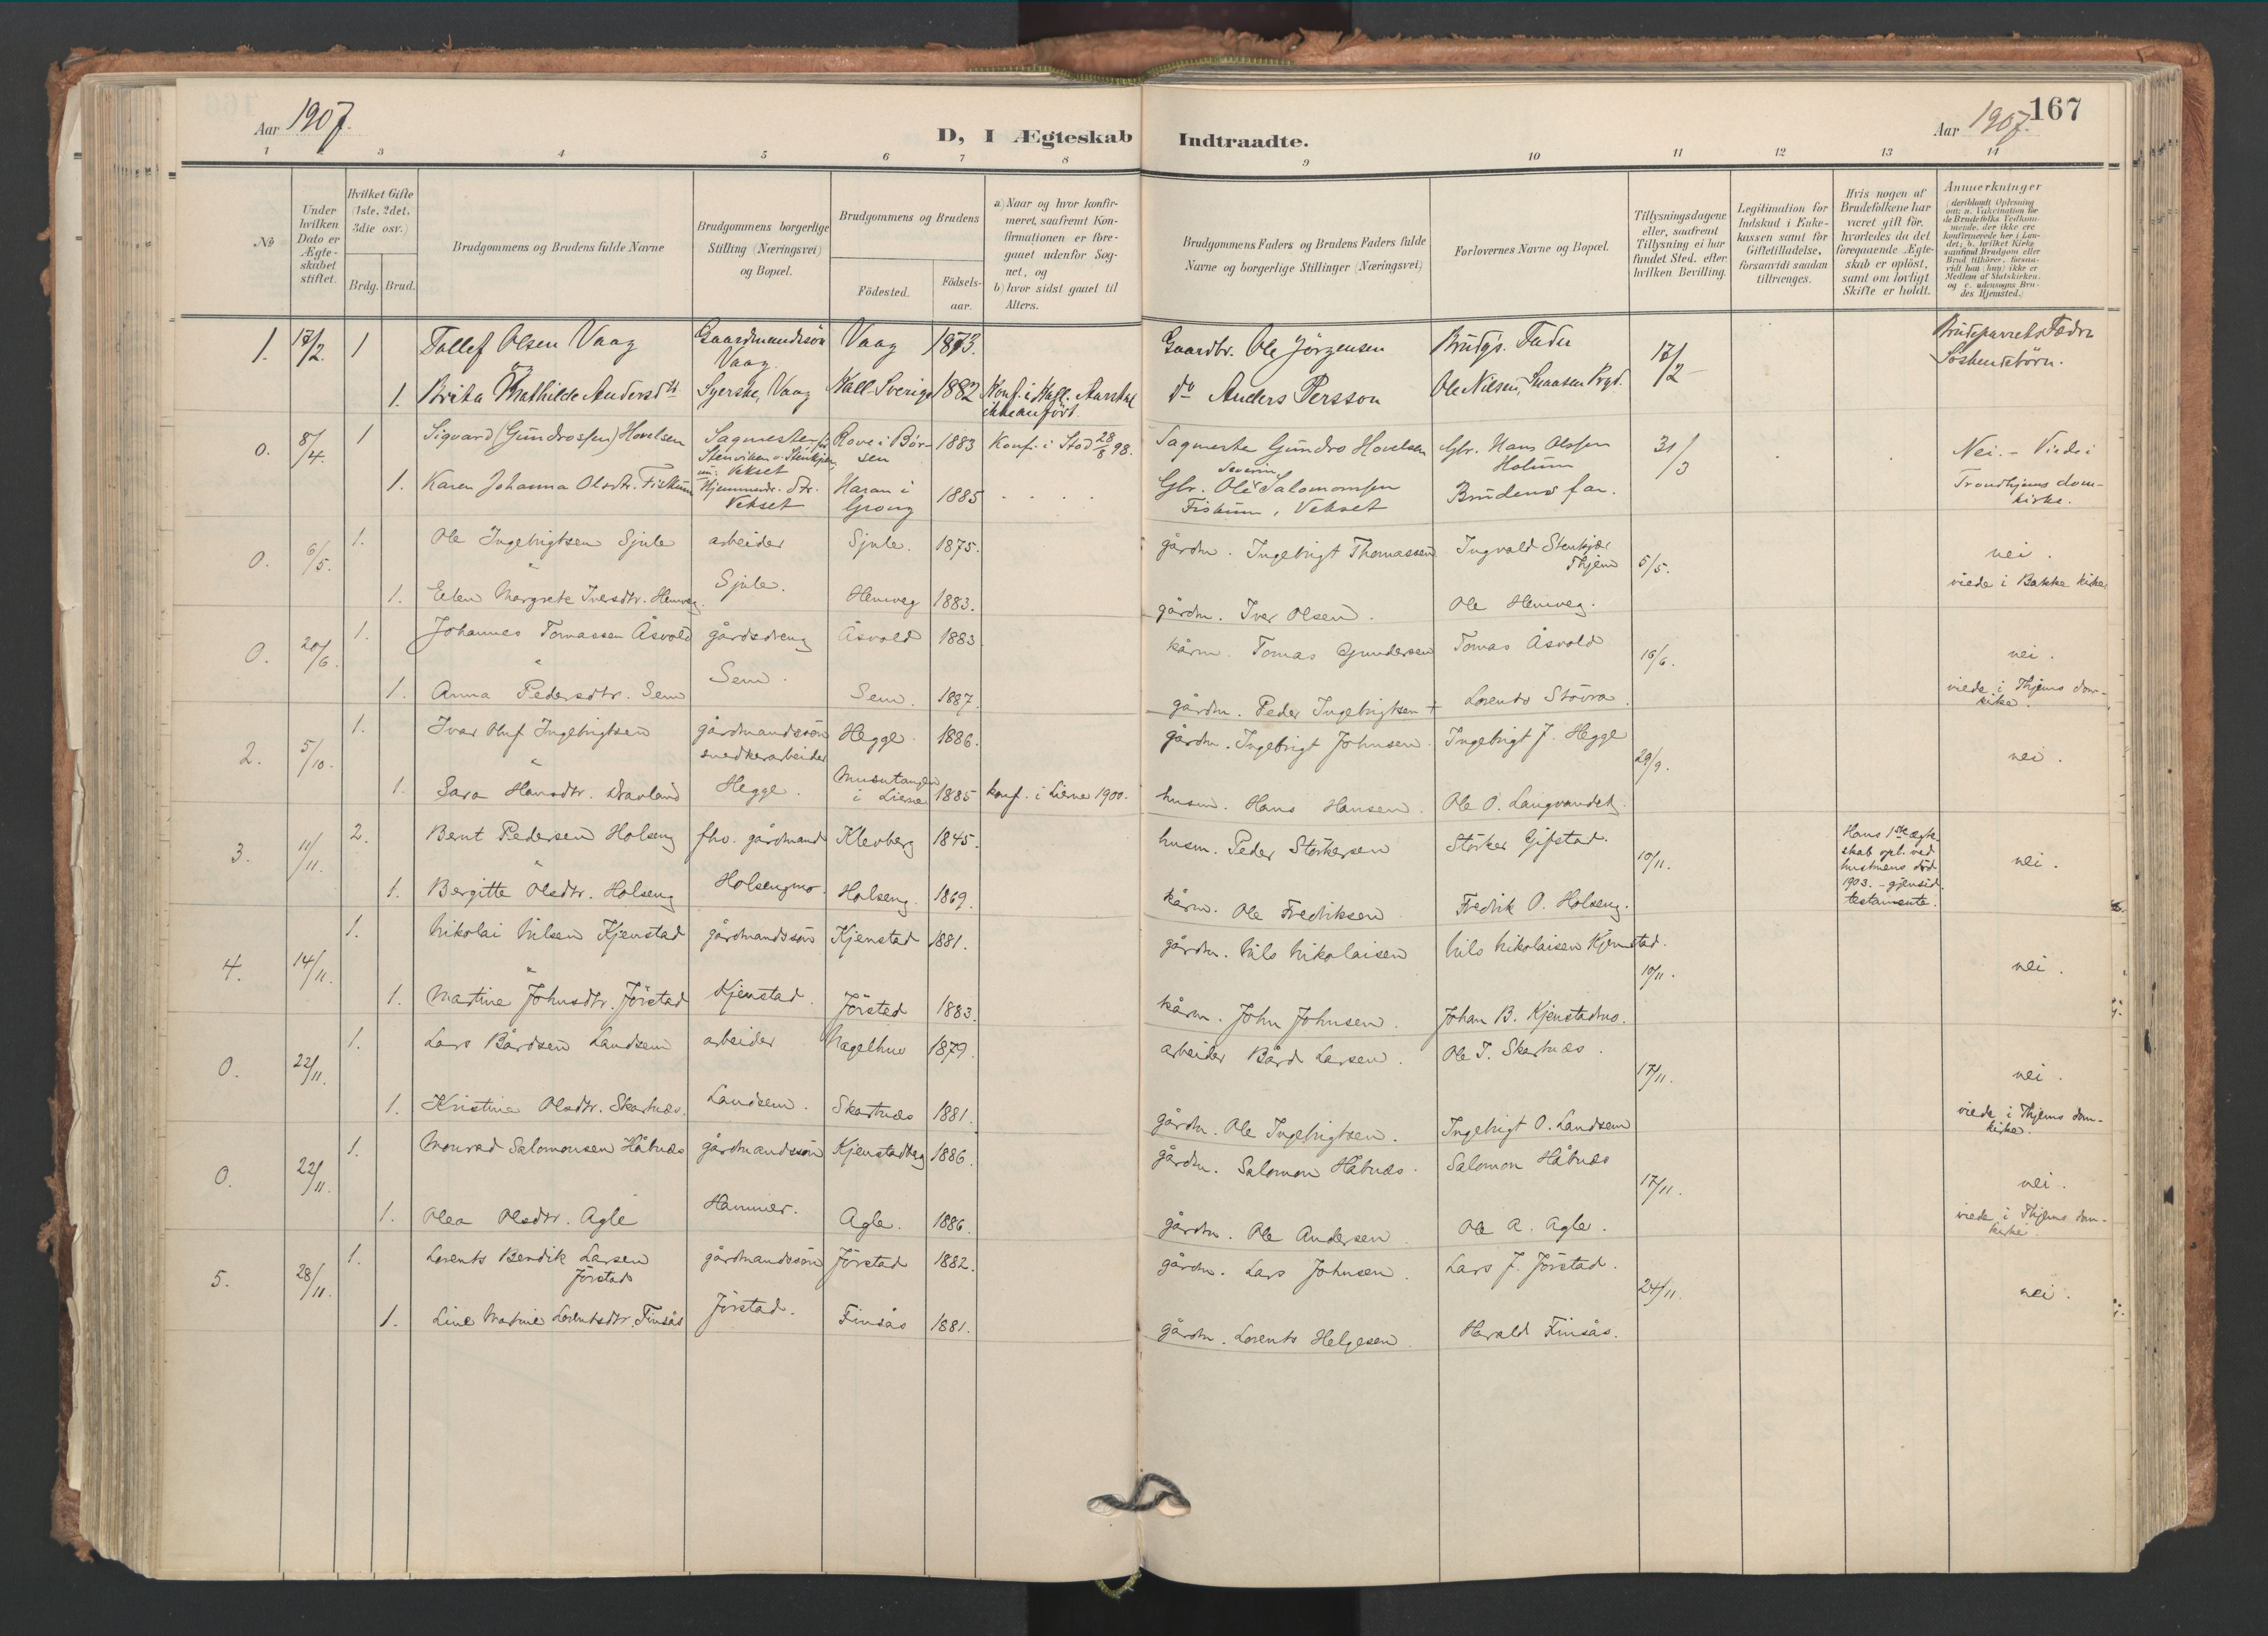 167
Aar 1907.
D, I Ægteskab Indtraadte.
Aar 1907.
1 2 3 4 5 6 7 8 9 10 11 12 13 14
No
Under hvilken Dato er Ægteskabet stiftet.
Hvilket Gifte (1ste, 2det, 3die osv.)
Brdg. Brud.
Brudgommens og Brudens fulde Navne
Brudgommens borgerlige Stilling (Næringsvei) og Bopæl.
Brudgommens og Brudens
Födested.
Födsels-aar.
a) Naar og hvor konfir-
meret, saafremt Kon-
firmationen er fore-
gaaet udenfor Sog-
net, og
b) hvor sidst gaaet til
Alters.
Brudgommens Faders og Brudens Faders fulde
Navne og borgerlige Stillinger (Næringsvei)
Forlovernes Navne og Bopæl.
Tillysningsdagene
eller, saafremt
Tillysning ei har
fundet Sted, efter
hvilken Bevilling.
Legitimation for
Indskud i Enke-
kassen samt for
Giftetilladelse,
forsaavidt saadan
tiltrænges.
Hvis nogen af
Brudefolkene har
været gift før,
hvorledes da det
foregaaende Ægte-
skab er oplöst,
samt om lovligt
Skifte er holdt.
Anmerkninger
(deriblandt Oplysning
om: a. Vakcination for
de Brudefolks Vedkom-
mende, der ikke ere
konfirmerede her i Lan-
det; b. hvilket Kirke
samfund Brudgom eller
Brud tilhörer, forsaa-
vidt han (hun) ikke er
Medlem af Statskirken,
og c. udensogns Bru-
des Hjemsted.)
1. 17/2 1 Tollef Olsen Vaag Gaardmandssön Vaag Vaag 1873. Gaardbr. Ole Jörgensen Brudgs. Fader 17/2 Brudeparrets Fædre Söskendebörn.
og
1. Brita Mathilde Andersdtr Syerske, Vaag Kall-Sverige 1882 Konf. i Kall. Aarstal ikke anfört. do Anders Persson Ole Nilsen, Snaasen Prgd.
0. 8/4. 1 Sigvard (Gundrossen) Hovelsen Sagmester Stenviken v. Stenkjær, Rove i Börsen 1883 Konf. i Stod 28/8 98. Sagmester Gundro Hovelsen Gbr. Hans Olssen Holum 31/3 Nei. - Viede i
1. Karen Johanna Olsdtr. Fiskum Hjemmevr. dtr. Vekset Haran i Grong 1885 Gbr. Ole Severin Salomonsen Fiskum, Vekset Brudens far. Trondhjems dom-
kirke.
0. 6/5. 1. Ole Ingebrigtsen Sjule arbeider Sjule. 1875. gårdm. Ingebrigt Thomassen Ingvald Stenkjær Thjem 5/5. nei.
1. Elen Margrete Iversdtr. Hemveg. Sjule. Hemveg 1883. gårdm. Iver Olsen. Ole Hemveg. viede i Bakke kirke
0. 20/6. 1. Johannes Tomassen Åsvold gårdsdreng Åsvold 1883 kårm. Tomas Gundersen Tomas Åsvold 16/6. nei.
1. Anna Pedersdtr. Sem Sem. Sem. 1887. gårdm. Peder Ingebrigtsen + Lorents Stövra. viede i Thjems dom-
kirke.
2. 5/10. 1. Ivar Oluf Ingebrigtsen gårdmandssön snedkerarbeider Hegge. 1886. gårdm. Ingebrigt Johnsen. Ingebrigt J. Hegge 29/9. nei.
1. Sara Hansdtr. Hegge. i Lierne 1885 konf. i Lierne 1900. husm. Hans Hansen. Ole O. Langvandet.
3. 11/11. 2. Bent Pedersen Holseng fhv. gårdmand Klevberg 1845. husm. Peder Störkersen Störker Gifstad. 10/11. Hans 1ste ægte-
skab opl. ved
hustruens död
1903. - gjensid.
testamente. nei.
1. Bergitte Olsdtr. Holseng Holsengmo. Holseng. 1869. kårm. Ole Fredriksen Fredrik O. Holseng.
4. 14/11. 1. Nikolai Nilsen Kjenstad gårdmandssön Kjenstad 1881. gårdm. Nils Nikolaisen Nils Nikolaisen Kjenstad. 10/11. nei.
1. Martine Johnsdtr. Jörstad Kjenstad. Jörstad 1883. kårm. John Johnsen. Johan B. Kjenstadmo.
0. 22/11. 1. Lars Bårdsen Landsem arbeider Nagelhus 1879. arbeider Bård Larsen. Ole T. Skartnæs. 17/11. nei.
1. Kristine Olsdtr. Skartnæs. Landsem. Skartnæs 1881. gårdm. Ole Ingebrigtsen. Ingebrigt O. Landsem viede i Thjems dom-
kirke.
0. 22/11. 1. Monrad Salomonsen Håbnæs gårdmandssön Kjenstadbg 1886. gårdm. Salomon Håbnæs. Salomon Håbnæs 17/11. nei.
1. Olea Olsdtr. Agle Hammer. Agle. 1886. gårdm. Ole Andersen Ole A. Agle. viede i Thjems dom-
kirke.
5. 28/11. 1. Lorents Bendik Larsen Jörstad gårdmandssön Jörstad 1882. gårdm. Lars Johnsen. Lars J. Jörstad. 24/11. nei.
1. Line Martine Lorentsdtr. Finsås Jörstad. Finsås 1881. gårdm. Lorents Helgesen Harald Finsås.